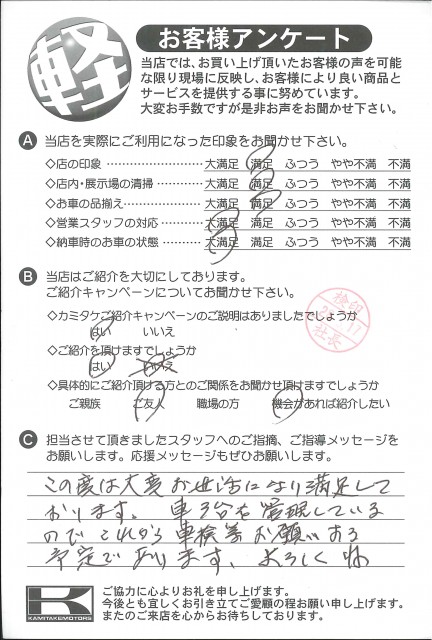 軽
お客様アンケート
当店では、お買い上げ頂いたお客様の声を可能
な限り現場に反映し、お客様により良い商品と
サービスを提供する事に努めています。
大変お手数ですが是非お声をお聞かせ下さい。
A 当店を実際にご利用になった印象をお聞かせ下さい。
◇店の印象 ………………………… 大満足 満足 ふつう やや不満 不満
◇店内・展示場の清掃 …………… 大満足 満足 ふつう やや不満 不満
◇お車の品揃え …………………… 大満足 満足 ふつう やや不満 不満
◇営業スタッフの対応 …………… 大満足 満足 ふつう やや不満 不満
◇納車時のお車の状態 …………… 大満足 満足 ふつう やや不満 不満
B 当店はご紹介を大切にしております。
ご紹介キャンペーンについてお聞かせ下さい。
◇カミタケご紹介キャンペーンのご説明はありましたでしょうか
はい いいえ
検印
社長
◇ご紹介を頂けますでしょうか
はい いいえ
◇具体的にご紹介頂ける方とのご関係をお聞かせ頂けますでしょうか
ご親族 ご友人 職場の方 機会があれば紹介したい
C 担当させて頂きましたスタッフへのご指摘、ご指導メッセージを
お願いします。応援メッセージもぜひお願いします。
この度は大変お世話になり満足して
おります。車3台を管理している
のでこれから車検等お願いする
予定であります。よろしくね
K
KAMITAKEMOTORS
ご協力に心よりお礼を申し上げます。
今後とも宜しくお引き立てご愛顧の程お願い申し上げます。
またのご来店を心からお待ちしております。